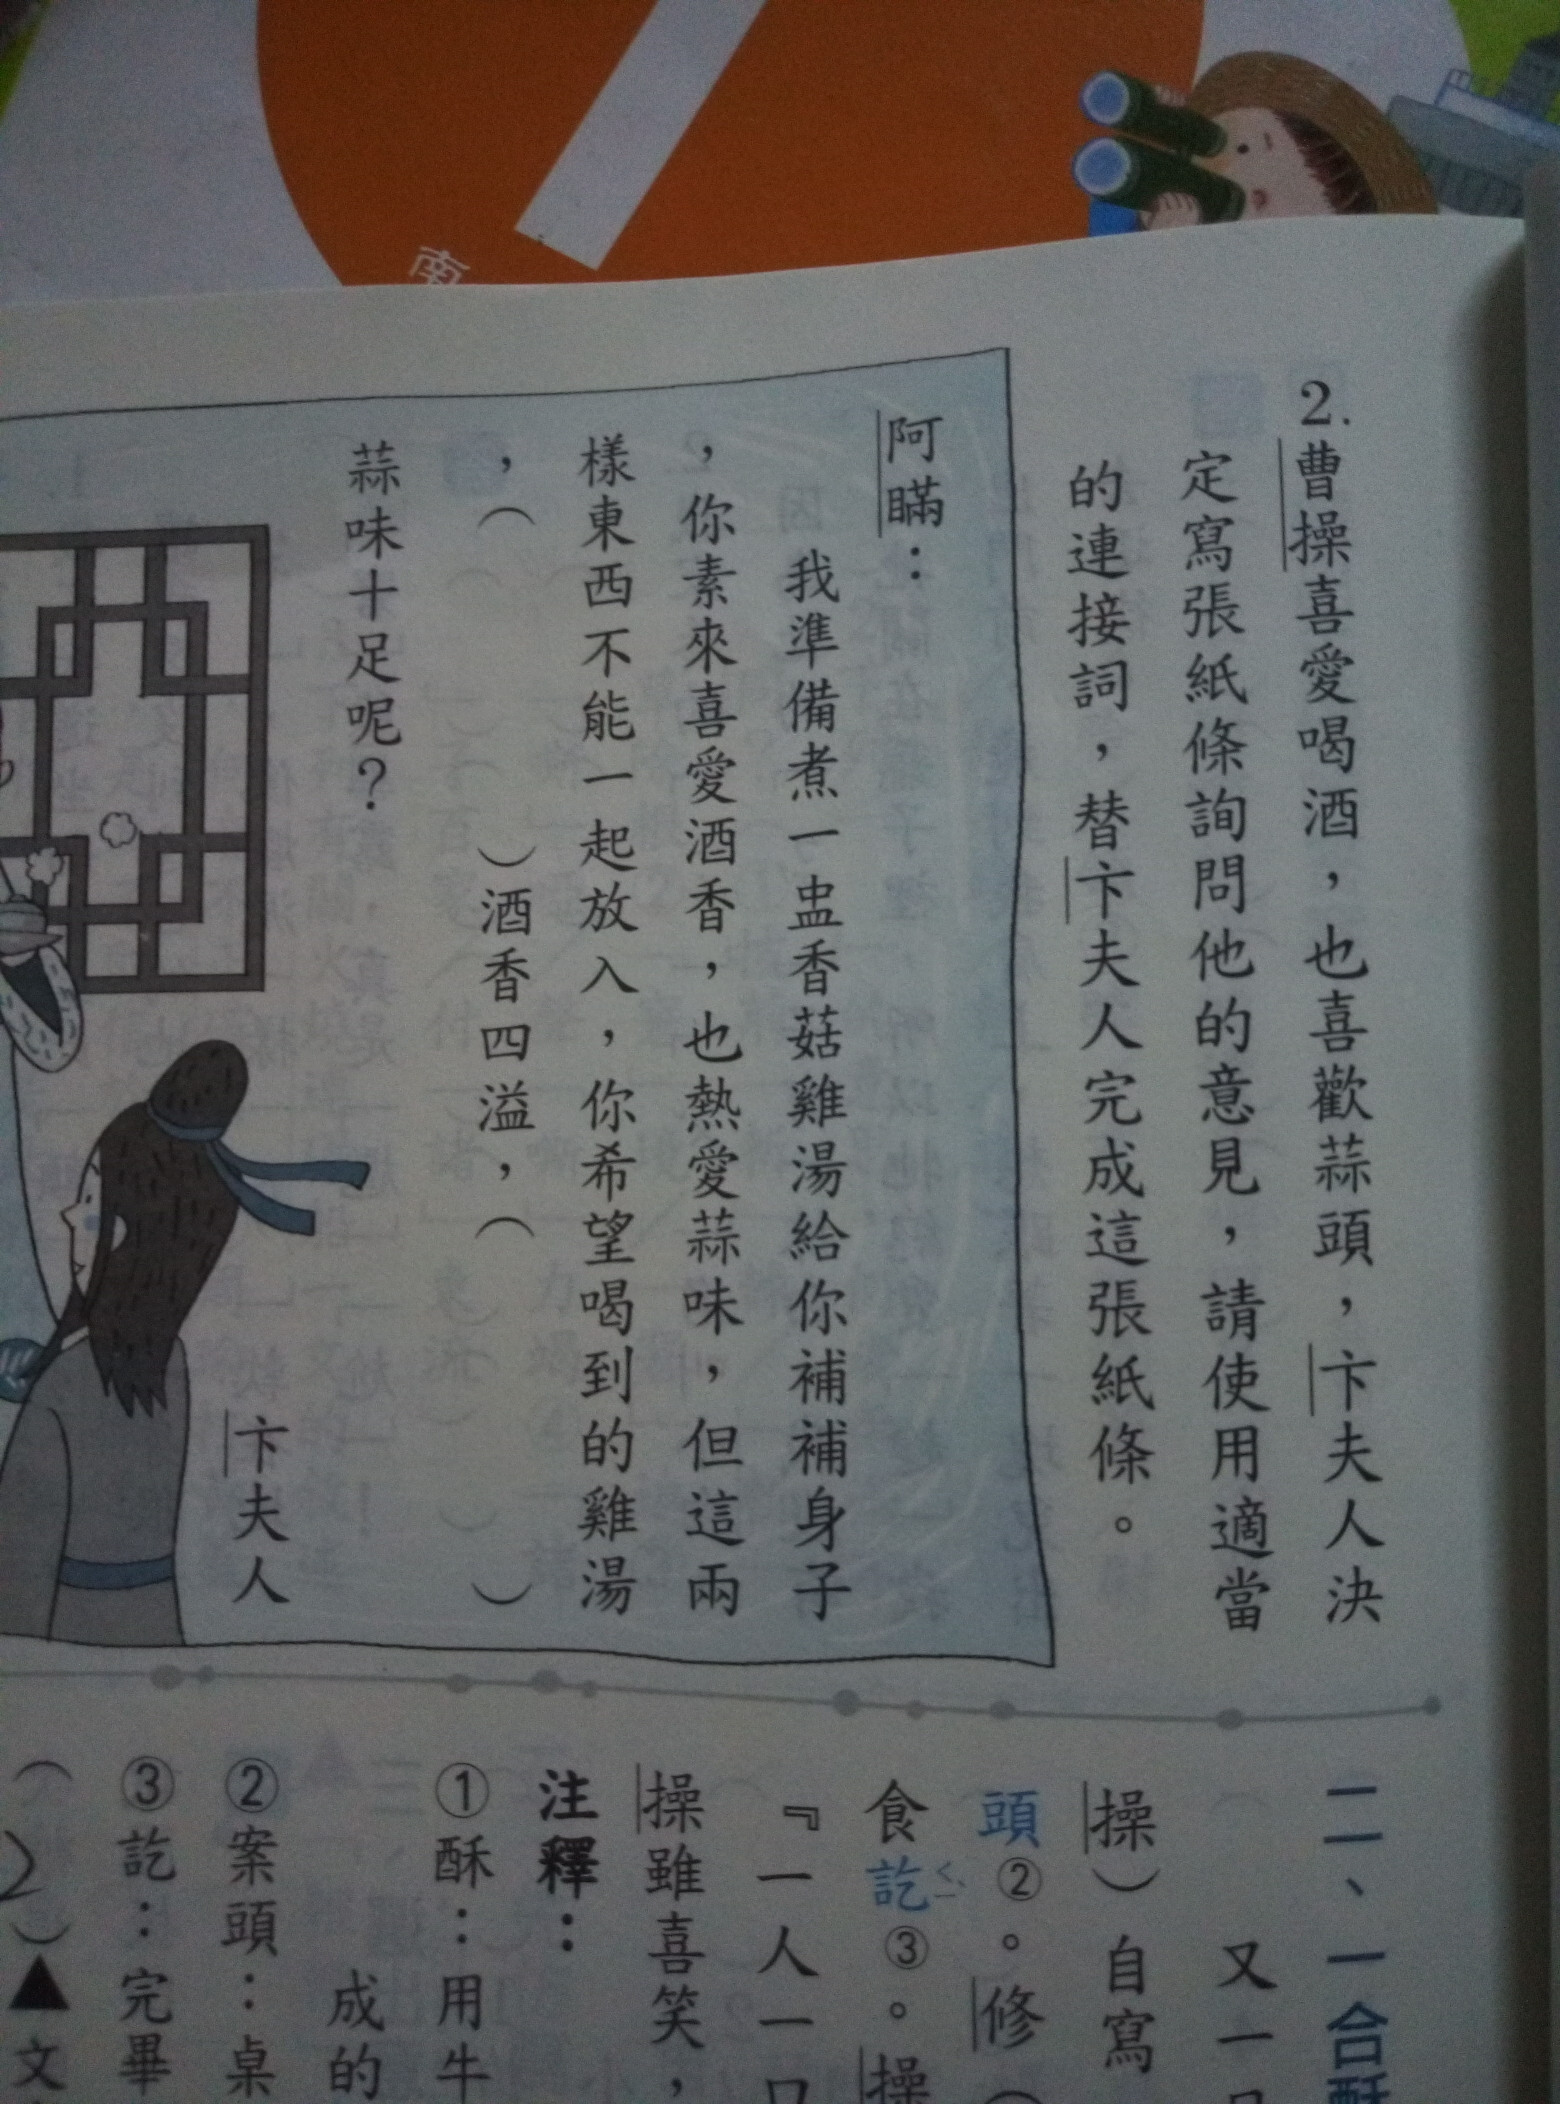 南
2.曹操喜愛喝酒，也喜歡蒜頭，卞夫人決
定寫張紙條詢問他的意見，請使用適當
的連接詞，替卞夫人完成這張紙條。
阿瞞：
我準備煮一盅香菇雞湯給你補補身子
，你素來喜愛酒香，也熱愛蒜味，但這兩
樣東西不能一起放入，你希望喝到的雞湯
，（　　　　）酒香四溢，（　　　　）
蒜味十足呢？
卞夫人
二、一合酥
又一
操）自寫
頭②。修（
食訖③。操
『一人一口
操雖喜笑，
注釋：
①酥：用牛
成的
②案頭：桌
③訖：完畢
（2）▲文